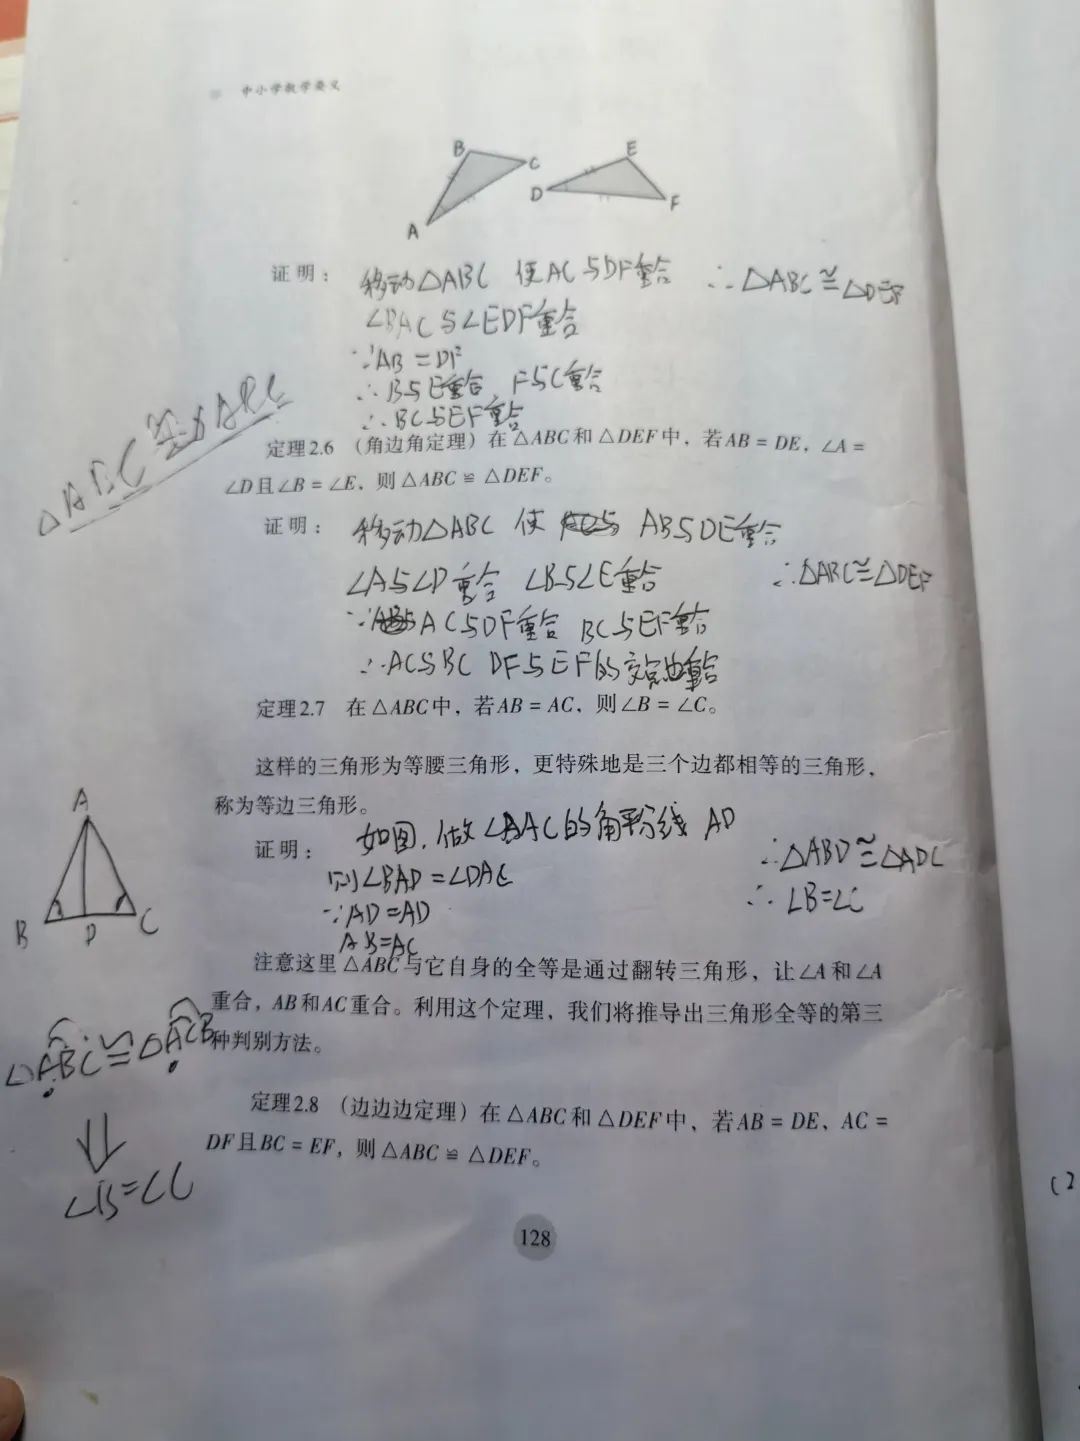 中小学数学要义
B
C
E
D
F
A
证明： 移动△ABC 使AC与DF重合 ∴△ABC≅△DEF
∠BAC与∠EDF重合
∵AB=DF
∴B与E重合，F与C重合
∴BC与EF重合
△ABC≅△ABC
定理2.6 （角边角定理）在△ABC和△DEF中，若AB = DE，∠A =
∠D且∠B = ∠E，则△ABC ≌ △DEF。
证明： 移动△ABC 使 AB与DE重合
∠A与∠D重合 ∠B与∠E重合 ∴△ABC≅△DEF
∵AC与DF重合 BC与EF重合
∴AC与BC DF与EF的交点也重合
定理2.7 在△ABC中，若AB = AC，则∠B = ∠C。
这样的三角形为等腰三角形，更特殊地是三个边都相等的三角形，
称为等边三角形。
A
B
D
C
证明： 如图，做∠BAC的角平分线 AD
则∠BAD=∠DAC ∴△ABD≅△ADC
∵AD=AD ∴∠B=∠C
AB=AC
注意这里△ABC与它自身的全等是通过翻转三角形，让∠A和∠A
重合，AB和AC重合。利用这个定理，我们将推导出三角形全等的第三
种判别方法。
△ABC≅△ACB
⇓
∠B=∠C
定理2.8 （边边边定理）在△ABC和△DEF中，若AB = DE、AC =
DF且BC = EF，则△ABC ≌ △DEF。
128